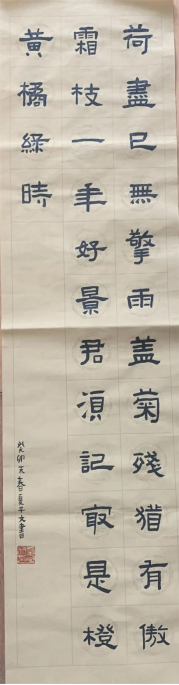 荷盡已無擎雨盖菊殘猶有傲
霜枝一年好景君須記㝡是橙
黃橘綠時
癸卯天春日夏平文書